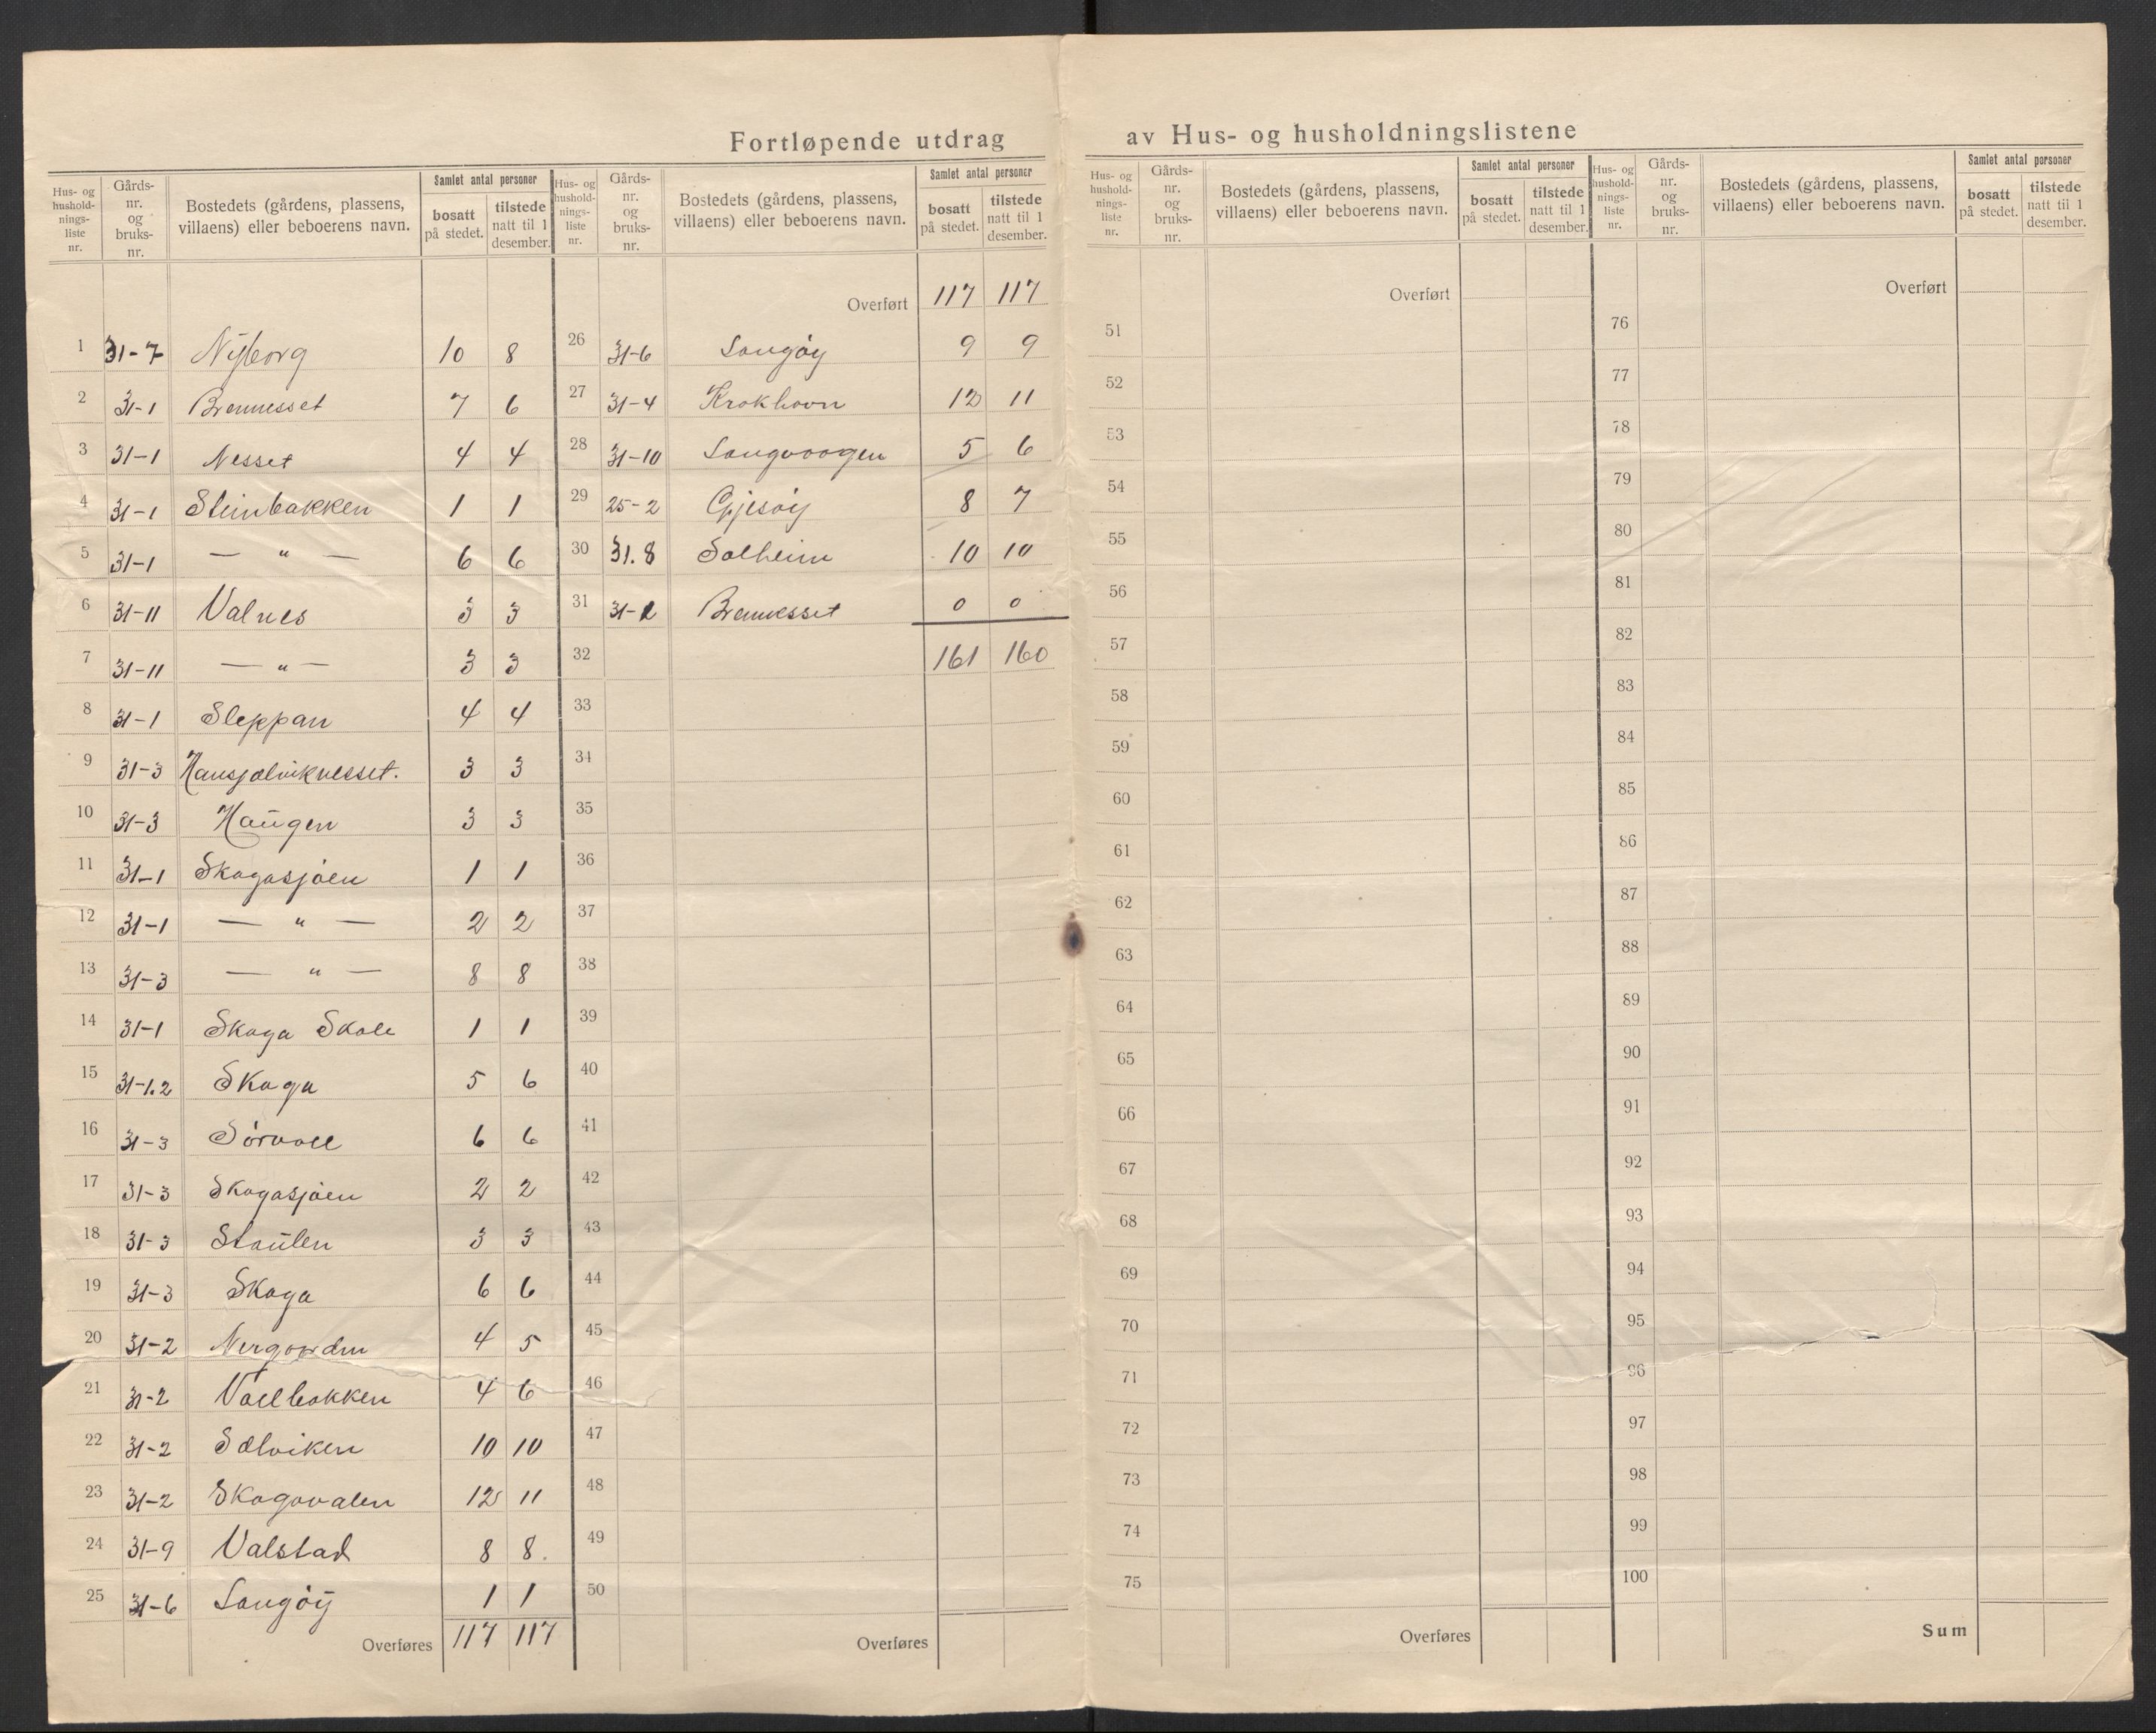 Fortløpende utdrag av Hus- og husholdningslistene
Hus- og hushold-nings-liste nr. | Gårds-nr. og bruks-nr. | Bostedets (gårdens, plassens, villaens) eller beboerens navn. | Samlet antal personer | bosatt på stedet. | tilstede natt til 1 desember.
1 31-7 Nyborg 10 8
2 31-1 Brennesset 7 6
3 31-1 Nesset 4 4
4 31-1 Steinbakken 1 1
5 31-1 — " — 6 6
6 31-11 Valnes 3 3
7 31-11 — " — 3 3
8 31-1 Sleppan 4 4
9 31-3 Hansjølviknesset. 3 3
10 31-3 Haugen 3 3
11 31-1 Skagasjøen 1 1
12 31-1 — " — 2 2
13 31-3 — " — 8 8
14 31-1 Skaga Skole 1 1
15 31-1.2 Skaga 5 6
16 31-3 Sørvoll 6 6
17 31-3 Skagasjøen 2 2
18 31-3 Staulen 3 3
19 31-3 Skaga 6 6
20 31-2 Nergaarden 4 5
21 31-2 Vollbakken 4 6
22 31-2 Sølviken 10 10
23 31-2 Skagavalen 12 11
24 31-9 Valstad 8 8.
25 31-6 Langøy 1 1
Overføres 117 117
Hus- og hushold-nings-liste nr. | Gårds-nr. og bruks-nr. | Bostedets (gårdens, plassens, villaens) eller beboerens navn. | Samlet antal personer | bosatt på stedet. | tilstede natt til 1 desember.
Overført 117 117
26 31-6 Langøy 9 9
27 31-4 Krokhavn 12 11
28 31-10 Langvaagen 5 6
29 25-2 Gjesøy 8 7
30 31.8 Solheim 10 10
31 31-1 Brennesset 0 0
32 161 160
33
34
35
36
37
38
39
40
41
42
43
44
45
46
47
48
49
50
Overføres
Hus- og hushold-nings-liste nr. | Gårds-nr. og bruks-nr. | Bostedets (gårdens, plassens, villaens) eller beboerens navn. | Samlet antal personer | bosatt på stedet. | tilstede natt til 1 desember.
Overført
51
52
53
54
55
56
57
58
59
60
61
62
63
64
65
66
67
68
69
70
71
72
73
74
75
Overføres
Hus- og hushold-nings-liste nr. | Gårds-nr. og bruks-nr. | Bostedets (gårdens, plassens, villaens) eller beboerens navn. | Samlet antal personer | bosatt på stedet. | tilstede natt til 1 desember.
Overført
76
77
78
79
80
81
82
83
84
85
86
87
88
89
90
91
92
93
94
95
96
97
98
99
100
Sum